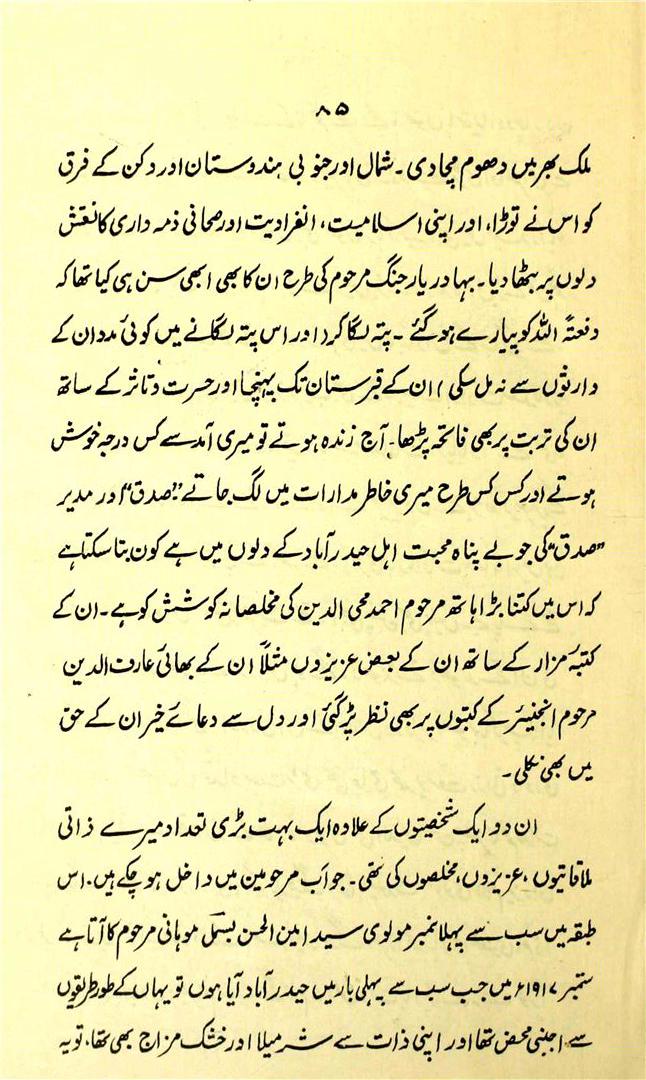 ۸۵
ملک بھر میں دھوم مچا دی۔ شمال اور جنوبی ہندوستان اور دکن کے فرق
کو اس نے توڑا، اور اپنی اسلامیت، انفرادیت اور صحافی ذمہ داری کا نقش
دلوں پر بٹھا دیا۔ بہادر یار جنگ مرحوم کی طرح ان کا بھی ابھی سن ہی کیا تھا کہ
دفعتہً اللہ کو پیارے ہو گئے ۔ پتہ لگا کر (اور اس پتہ لگانے میں کوئی مدد ان کے
وارثوں سے نہ مل سکی) ان کے قبرستان تک پہنچا اور حسرت و تاثر کے ساتھ
ان کی تربت پر بھی فاتحہ پڑھا۔ آج زندہ ہوتے تو میری آمد سے کس درجہ خوش
ہوتے اور کس کس طرح میری خاطر مدارات میں لگ جاتے ”صدق“ اور مدیر
”صدق“ کی جو بے پناہ محبت اہل حیدرآباد کے دلوں میں ہے کون بتا سکتا ہے
کہ اس میں کتنا بڑا ہاتھ مرحوم احمد محی الدین کی مخلصانہ کوشش کو ہے۔ ان کے
کتبۂ مزار کے ساتھ ان کے بعض عزیزوں مثلاً ان کے بھائی عارف الدین
مرحوم انجنیئر کے کتبوں پر بھی نظر پڑ گئی اور دل سے دعائے خیر ان کے حق
میں بھی نکلی۔
ان دو ایک شخصیتوں کے علاوہ ایک بہت بڑی تعداد میرے ذاتی
ملاقاتیوں ،عزیزوں، مخلصوں کی تھی۔ جو اب مرحومین میں داخل ہو چکے ہیں۔ اس
طبقہ میں سب سے پہلا نمبر مولوی سید امین الحسن بسمل موہانی مرحوم کا آتا ہے
ستمبر ۱۹۱۷ء میں جب سب سے پہلی بار میں حیدرآباد آیا ہوں تو یہاں کے طور طریقوں
سے اجنبی محض تھا اور اپنی ذات سے شرمیلا اور خشک مزاج بھی تھا، تو یہ